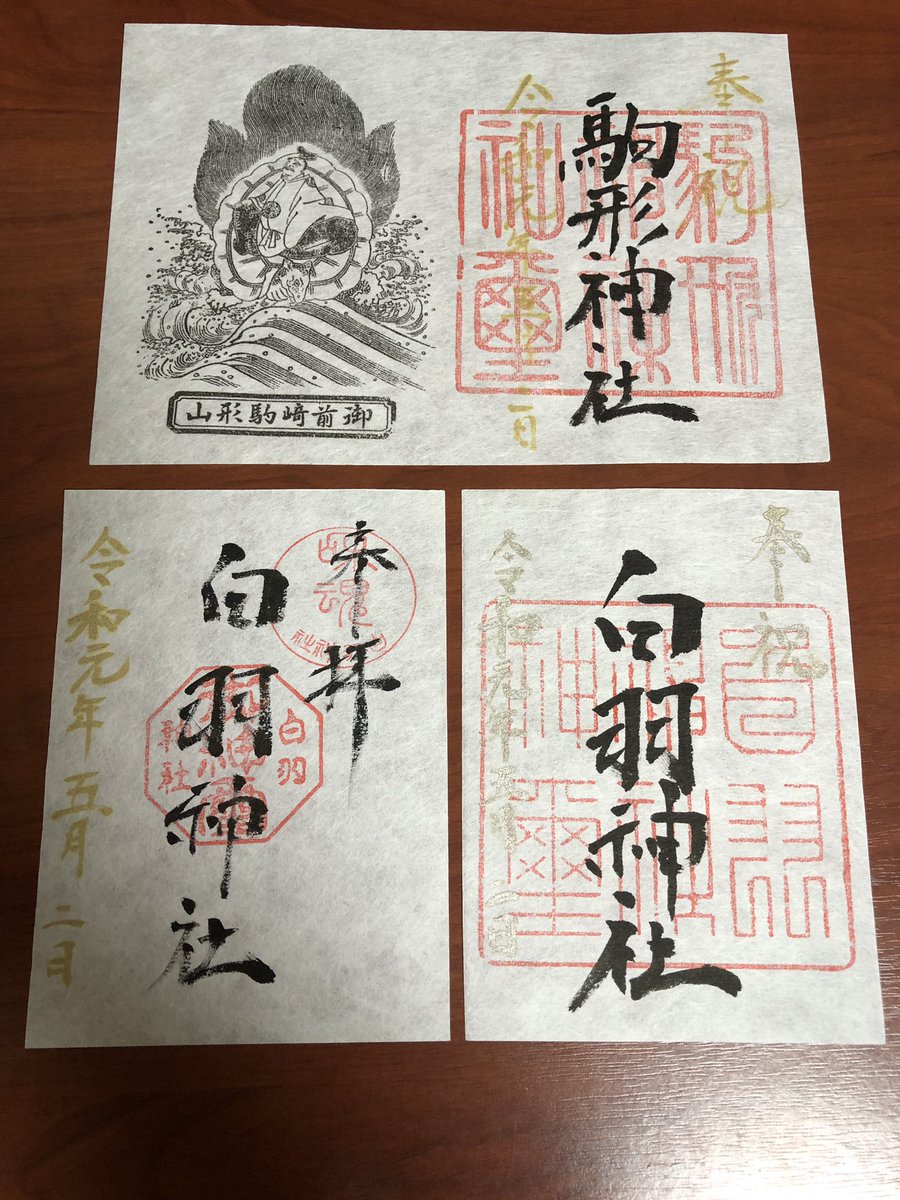 奉祝
駒形神社
令和元年五月二日
御前﨑駒形山
奉祝
白羽神社
白羽神社神璽
令和元年五月二日
奉拝
白羽神社
白羽
神社
令和元年五月二日